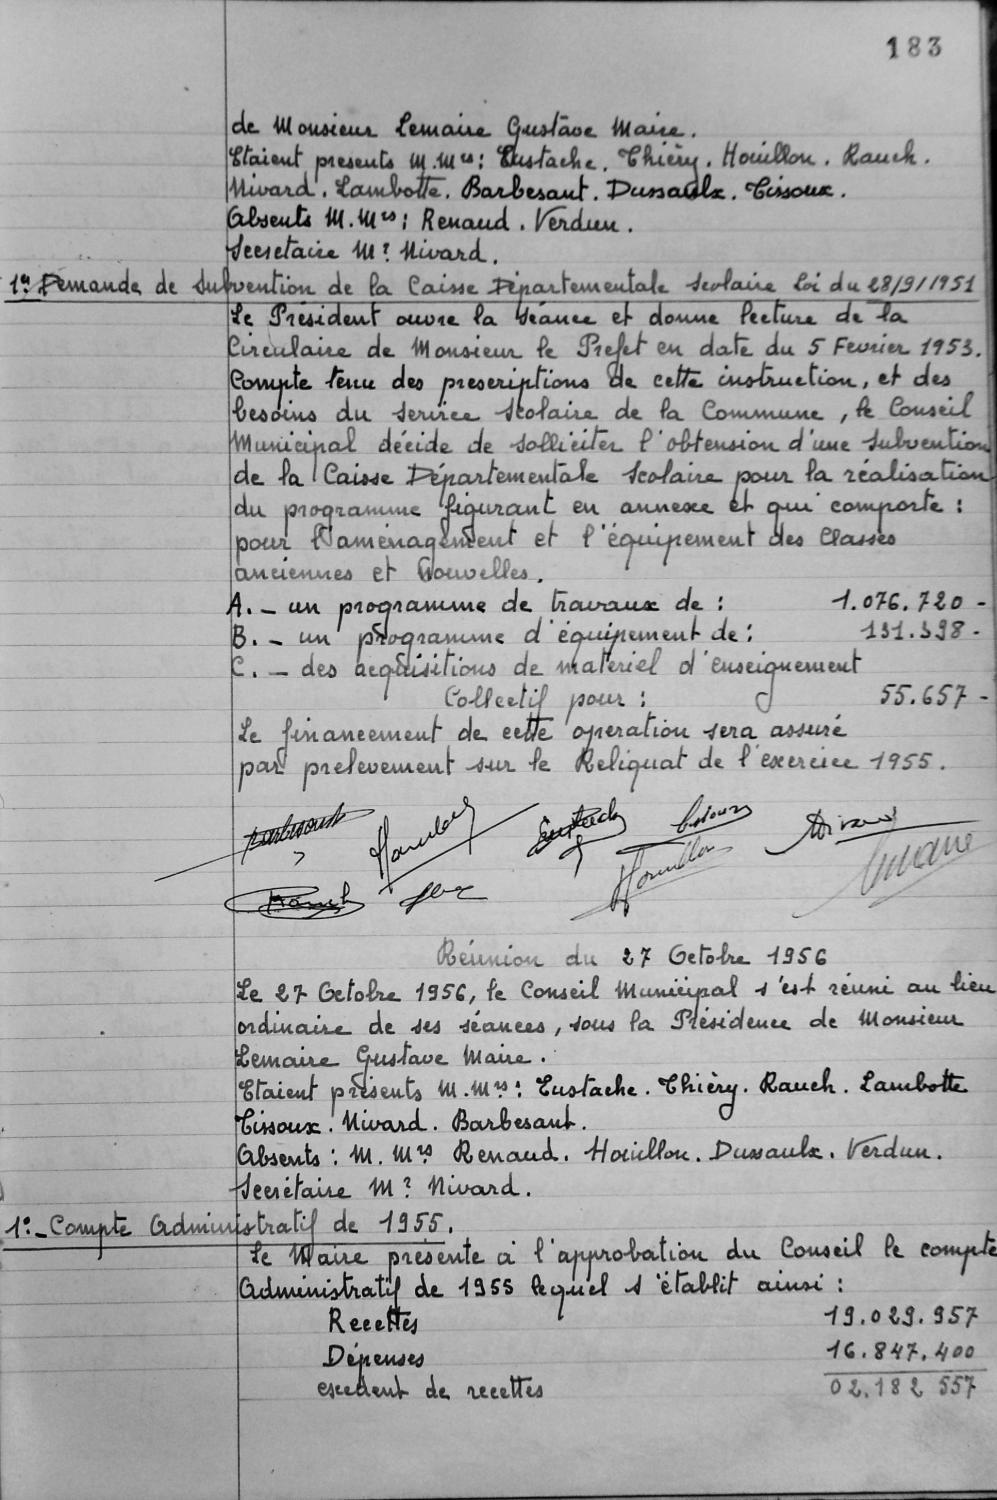 183
de Monsieur Lemaire Gustave Maire.
Etaient presents M.Mrs: Eustache. Thiéry. Houillon. Rauch.
Nivard. Lambotte. Barbesant. Dussaulx. Tissoux.
Absents M.Mrs: Renaud. Verdun.
Secretaire Mr Nivard.
1º Demande de Subvention de la Caisse Départementale Scolaire Loi du 28/9/1951
Le Président ouvre la séance et donne lecture de la
Circulaire de Monsieur le Prefet en date du 5 Fevrier 1953.
Compte tenu des prescriptions de cette instruction, et des
besoins du service scolaire de la Commune, le Conseil
Municipal décide de solliciter l'obtension d'une Subvention
de la Caisse Départementale Scolaire pour la réalisation
du programme figurant en annexe et qui comporte :
pour l'aménagement et l'équipement des Classes
anciennes et Nouvelles.
A. - un programme de travaux de : 1.076.720 -
B. - un programme d'équipement de : 131.398 -
C. - des acquisitions de matériel d'enseignement
Collectif pour : 55.657 -
Le financement de cette operation sera assuré
par prelevement sur le Reliquat de l'exercice 1955.
Houillon
Réunion du 27 Octobre 1956
Le 27 Octobre 1956, le Conseil Municipal s'est réuni au lieu
ordinaire de ses séances, sous la Présidence de Monsieur
Lemaire Gustave Maire.
Etaient présents M.Mrs: Eustache. Thiéry. Rauch. Lambotte
Tissoux. Nivard. Barbesant.
Absents : M.Mrs Renaud. Houillon. Dussaulx. Verdun.
Secrétaire Mr Nivard.
1º - Compte Administratif de 1955.
Le Maire présente à l'approbation du Conseil le compte
Administratif de 1955 lequel s'établit ainsi :
Recettes 19.029.957
Dépenses 16.847.400
excedent de recettes 02.182 557